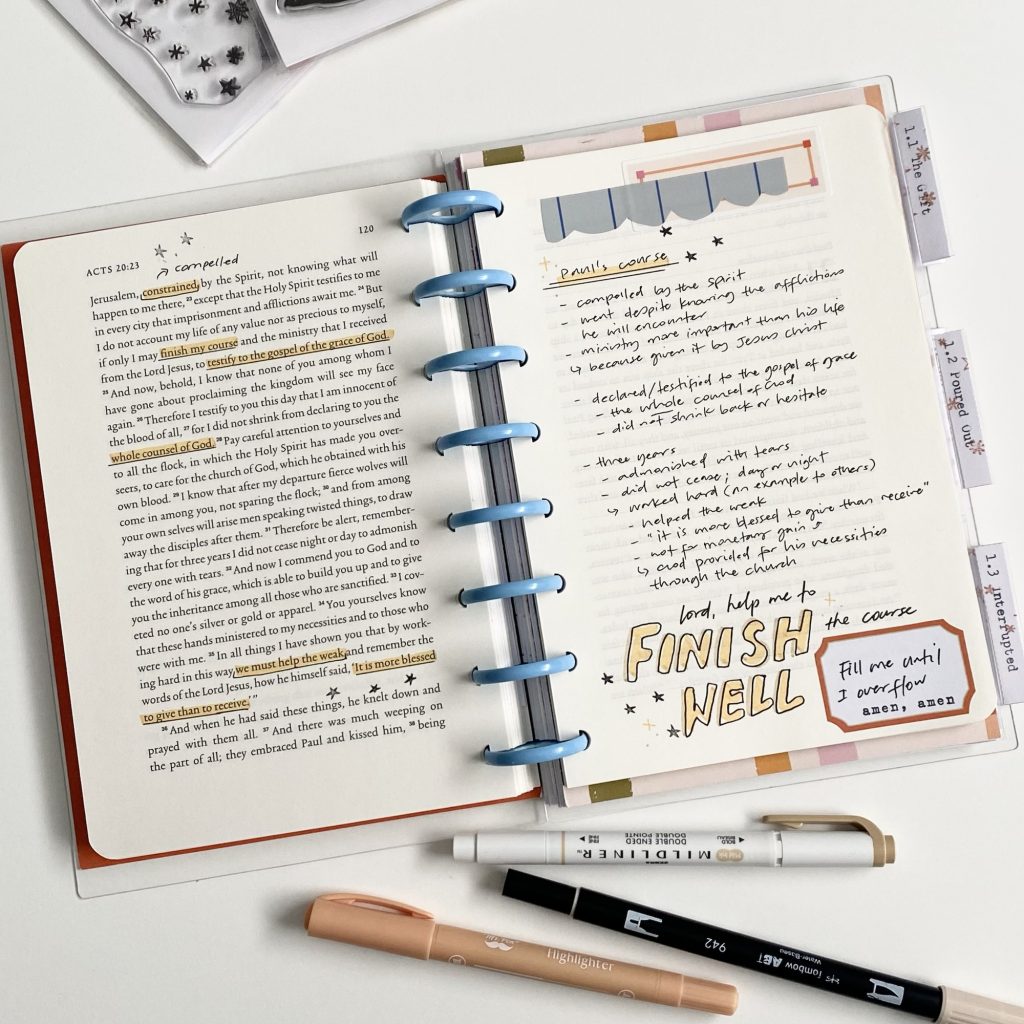 ACTS 20:23
120
compelled
Jerusalem, constrained by the Spirit, not knowing what will
happen to me there, ²³ except that the Holy Spirit testifies to me
in every city that imprisonment and afflictions await me. ²⁴ But
I do not account my life of any value nor as precious to myself,
if only I may finish my course and the ministry that I received
from the Lord Jesus, to testify to the gospel of the grace of God.
²⁵ And now, behold, I know that none of you among whom I
have gone about proclaiming the kingdom will see my face
again. ²⁶ Therefore I testify to you this day that I am innocent of
the blood of all, ²⁷ for I did not shrink from declaring to you the
whole counsel of God. ²⁸ Pay careful attention to yourselves and
to all the flock, in which the Holy Spirit has made you over-
seers, to care for the church of God, which he obtained with his
own blood. ²⁹ I know that after my departure fierce wolves will
come in among you, not sparing the flock; ³⁰ and from among
your own selves will arise men speaking twisted things, to draw
away the disciples after them. ³¹ Therefore be alert, remember-
ing that for three years I did not cease night or day to admonish
every one with tears. ³² And now I commend you to God and to
the word of his grace, which is able to build you up and to give
you the inheritance among all those who are sanctified. ³³ I cov-
eted no one's silver or gold or apparel. ³⁴ You yourselves know
that these hands ministered to my necessities and to those who
were with me. ³⁵ In all things I have shown you that by work-
ing hard in this way we must help the weak and remember the
words of the Lord Jesus, how he himself said, 'It is more blessed
to give than to receive.'"
³⁶ And when he had said these things, he knelt down and
prayed with them all. ³⁷ And there was much weeping on
the part of all; they embraced Paul and kissed him, ³⁸ being
Paul's course
- compelled by the Spirit
- went despite knowing the afflictions
he will encounter
- ministry more important than his life
↳ because given it by Jesus Christ
- declared/testified to the gospel of grace
- the whole counsel of God
- did not shrink back or hesitate
- three years
- admonished with tears
- did not cease; day or night
↳ worked hard (an example to others)
- helped the weak
- "it is more blessed to give than receive"
- not for monetary gain
↳ God provided for his necessities
through the church
lord, help me to
FINISH
WELL
the course
Fill me until
I overflow
amen, amen
1.1 The Gift
1.2 Poured Out
1.3 Interrupted
MILDLINER
DOUBLE ENDED
DOUBLE POINTE
BOLD
FINE
942
Tombow ABT
Water-Based
Highlighter